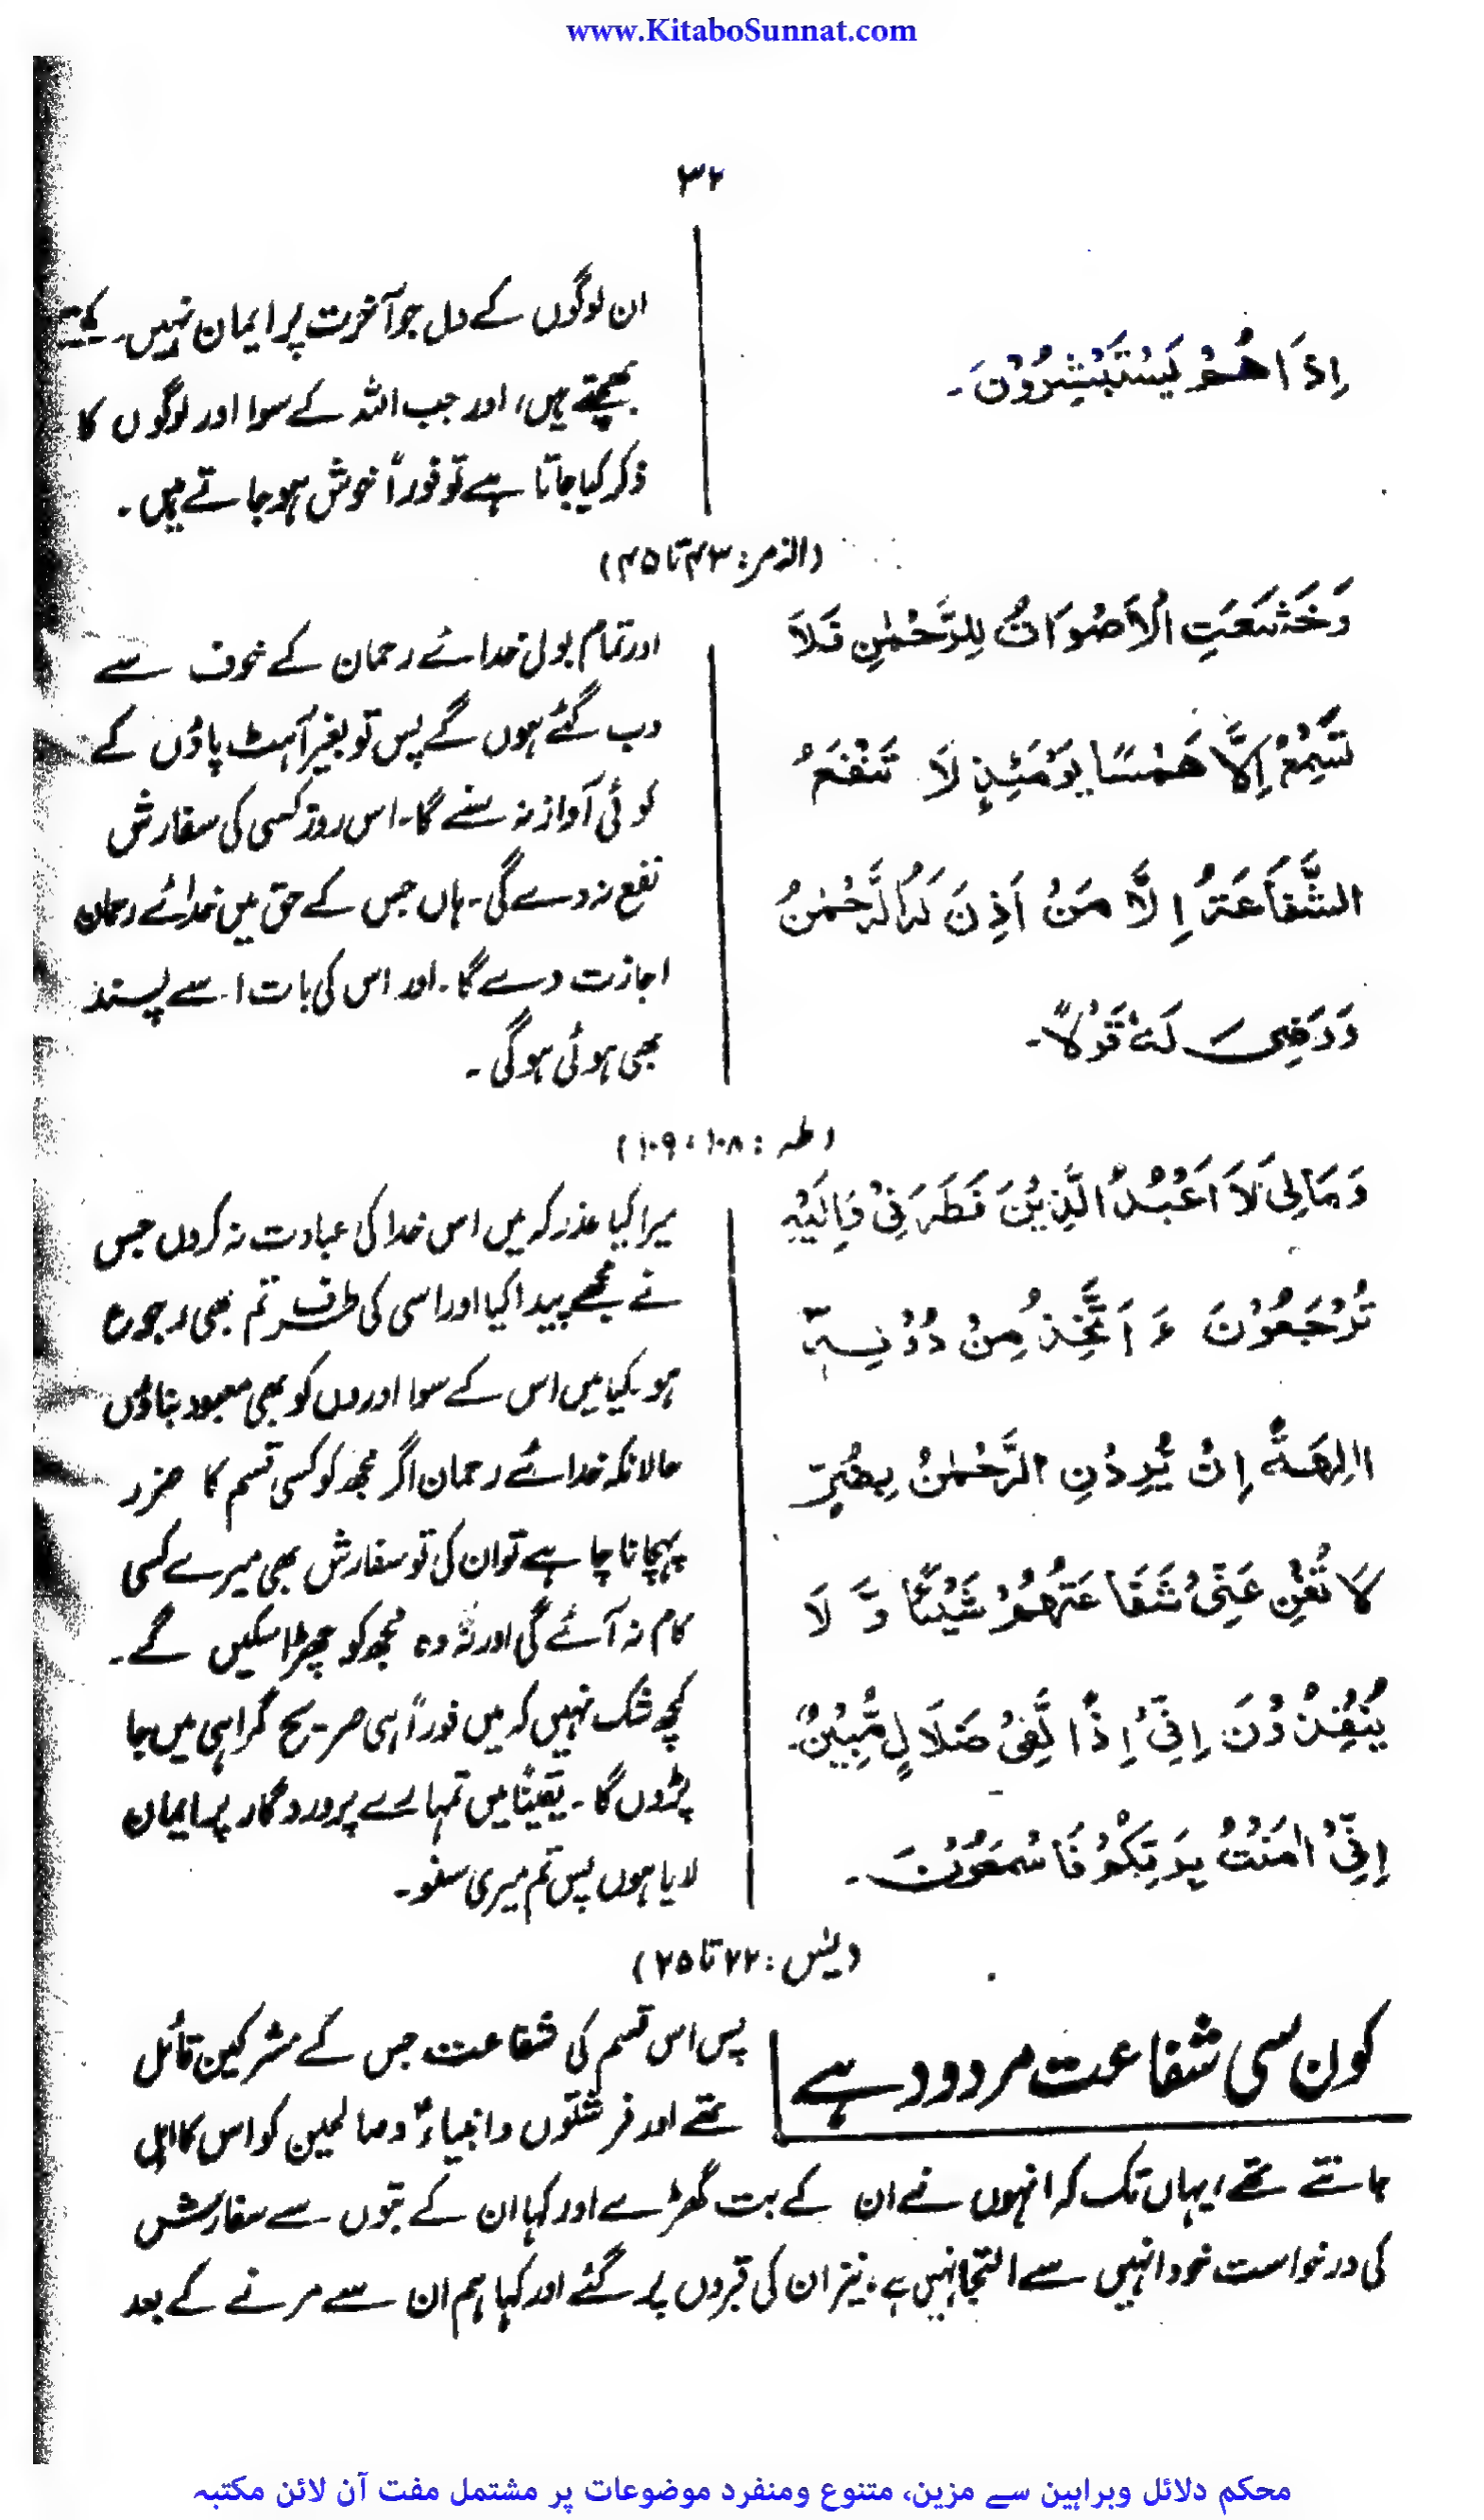 www.KitaboSunnat.com
۳۲
اِذَا هُمْ يَسْتَبْشِرُوْنَ۔
ان لوگوں کے دل جو آخرت پر ایمان نہیں رکھتے
بھچتے ہیں، اور جب اللہ کے سوا اور لوگوں کا
ذکر کیا جاتا ہے تو فوراً خوش ہو جاتے ہیں۔
(الزمر: ۴۳ تا ۴۵)
وَخَشَعَتِ الْاَصْوَاتُ لِلرَّحْمٰنِ فَلَا
تَسْمَعُ اِلَّا هَمْسًا يَوْمَئِذٍ لَا تَنْفَعُ
الشَّفَاعَةُ اِلَّا مَنْ اَذِنَ لَهُ الرَّحْمٰنُ
وَرَضِیَ لَهٗ قَوْلًا۔
اور تمام بولی خدائے رحمان کے خوف سے
دب گئے ہوں گے پس تو بغیر آہٹ پاؤں کے
کوئی آواز نہ سنے گا۔ اس روز کسی کی سفارش
نفع نہ دے گی۔ ہاں جس کے حق میں خدائے رحمان
اجازت دے گا۔ اور اس کی بات اسے پسند
بھی ہوئی ہوگی۔
(طہ: ۱۰۸، ۱۰۹)
وَمَالِیَ لَا اَعْبُدُ الَّذِیْنَ فَطَرَنِیْ وَاِلَیْہِ
تُرْجَعُوْنَ ءَاَتَّخِذُ مِنْ دُوْنِہٖٓ
اٰلِهَةً اِنْ یُّرِدْنِ الرَّحْمٰنُ بِضُرٍّ
لَا تُغْنِ عَنِّیْ شَفَاعَتُهُمْ شَیْئًا وَّ لَا
یُنْقِذُوْنَ اِنِّیْٓ اِذًا لَّفِیْ ضَلَالٍ مُّبِیْنٍ۔
اِنِّیْٓ اٰمَنْتُ بِرَبِّکُمْ فَاسْمَعُوْنَ۔
میرا کیا عذر کہ میں اس خدا کی عبادت نہ کروں جس
نے مجھے پیدا کیا اور اسی کی طرف تم بھی رجوع
ہو۔ کیا میں اس کے سوا اوروں کو بھی معبود بناؤں
حالانکہ خدائے رحمان اگر مجھ کو کسی قسم کا ضرر
پہچانا چاہے تو ان کی تو سفارش بھی میرے کسی
کام نہ آئے گی اور نہ وہ مجھ کو چھڑا سکیں گے۔
کچھ شک نہیں کہ میں فوراً ہی صریح گمراہی میں جا
پڑوں گا۔ یقینًا میں تمہارے پروردگار پر ایمان
لایا ہوں پس تم میری سنو۔
(یٰس: ۲۲ تا ۲۵)
کون سی شفاعت مردود ہے
پس اس قسم کی شفاعت جس کے مشرکین قائل
تھے اور فرشتوں و انبیاءؑ و صالحین کو اس کا اہل
جانتے تھے، یہاں تک کہ انہوں نے ان کے بت گھڑے اور کہا ان کے بتوں سے سفارش
کی درخواست خود انہیں سے التجا نہیں ہے، نیز ان کی قبروں پر گئے اور کہا ہم ان سے مرنے کے بعد
محکم دلائل وبراہین سے مزین، متنوع ومنفرد موضوعات پر مشتمل مفت آن لائن مکتبہ